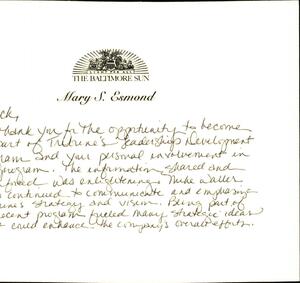 LIGHT FOR ALL
THE BALTIMORE SUN
Mary S. Esmond
ck,
hank you for the opportunity to become
part of Tribune's Leadership Development
gram and your personal involvement in
program. The information shared and
was enlightening. Mike Waller
s continued to communicate and emphasize
une's strategy and vision. Being part of
recent program fueled many strategic ideas
could enhance the company's overall efforts.